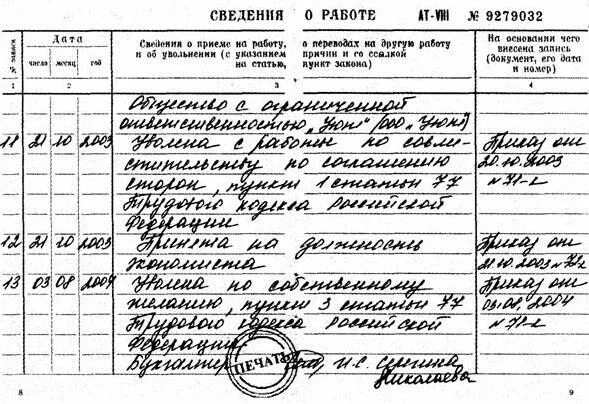 СВЕДЕНИЯ О РАБОТЕ АТ-VIII № 9279032
№ записи
Дата
число месяц год
Сведения о приеме на работу, о переводах на другую работу
и об увольнении (с указанием причин и со ссылкой
на статью, пункт закона)
На основании чего
внесена запись
(документ, его дата
и номер)
1 2 3 4
Общество с ограниченной
ответственностью „Уют" (ООО „Уют")
11 21 10 2003 Уволена с работы по совме-
стительству по соглашению
сторон, пункт 1 статьи 77
Трудового кодекса Российской
Федерации
Приказ от
20.10.2003
№ 71-к
12 21 10 2003 Принята на должность
экономиста
Приказ от
21.10.2003 № 72-к
13 03 08 2004 Уволена по собственному
желанию, пункт 3 статьи 77
Трудового кодекса Российской
Федерации
Приказ от
03.08.2004
№ 71-к
Бухгалтер И.С. Серегина
ПЕЧАТЬ
Николаева
8 9